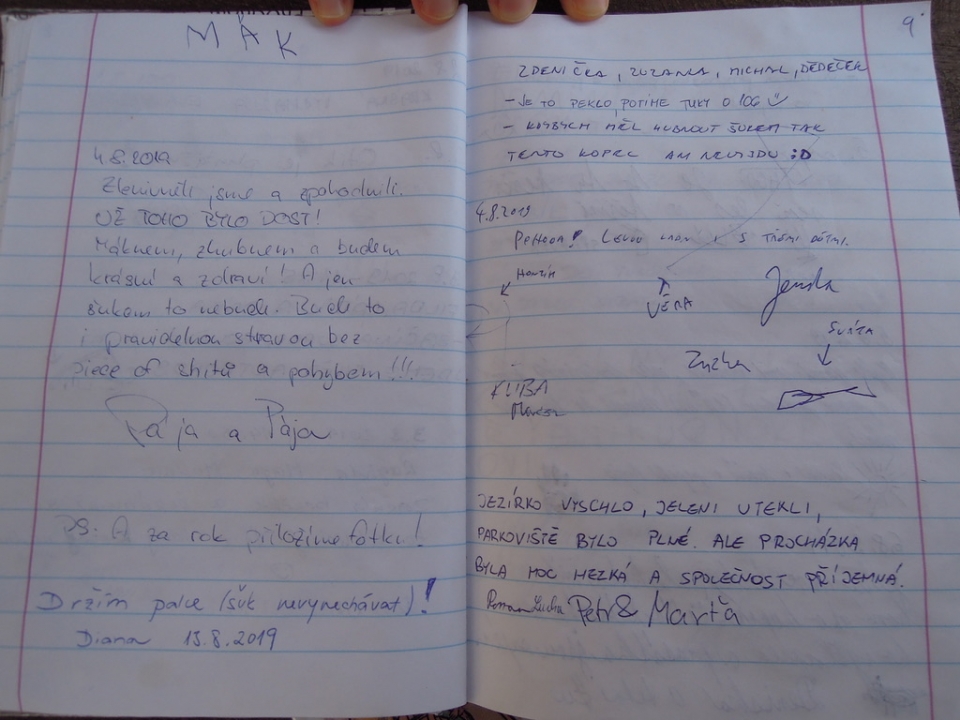 MÁK
4.8.2019
Zlenivněli jsme a zpohodlněli.
UŽ TOHO BYLO DOST!
Máknem, zhubnem a budem
krásní a zdraví! A jen
šukem to nebude. Bude to
i pravidelnou stravou bez
piece of shitů a pohybem!!!
Pája a Pája
PS. A za rok přiložíme fotku!
Držím palce (šuk nevynechávat)!
Diana 13.8.2019
9
ZDENIČKA, ZUZANKA, MICHAL, DĚDEČEK
- JE TO PEKLO, POTÍME TUKY O 106
- KDYBYCH MĚL HUBNOUT ŠUKEM TAK
TENTO KOPEC ANI NEVYJDU :D
4.8.2019
PETRA! S DĚTMI.
VĚRA
Jenda
Zuzka
KUBA
JEZÍRKO VYSCHLO, JELENI UTEKLI,
PARKOVIŠTĚ BYLO PLNÉ. ALE PROCHÁZKA
BYLA MOC HEZKÁ A SPOLEČNOST PŘÍJEMNÁ.
Roman Lucka Petr & Marťa